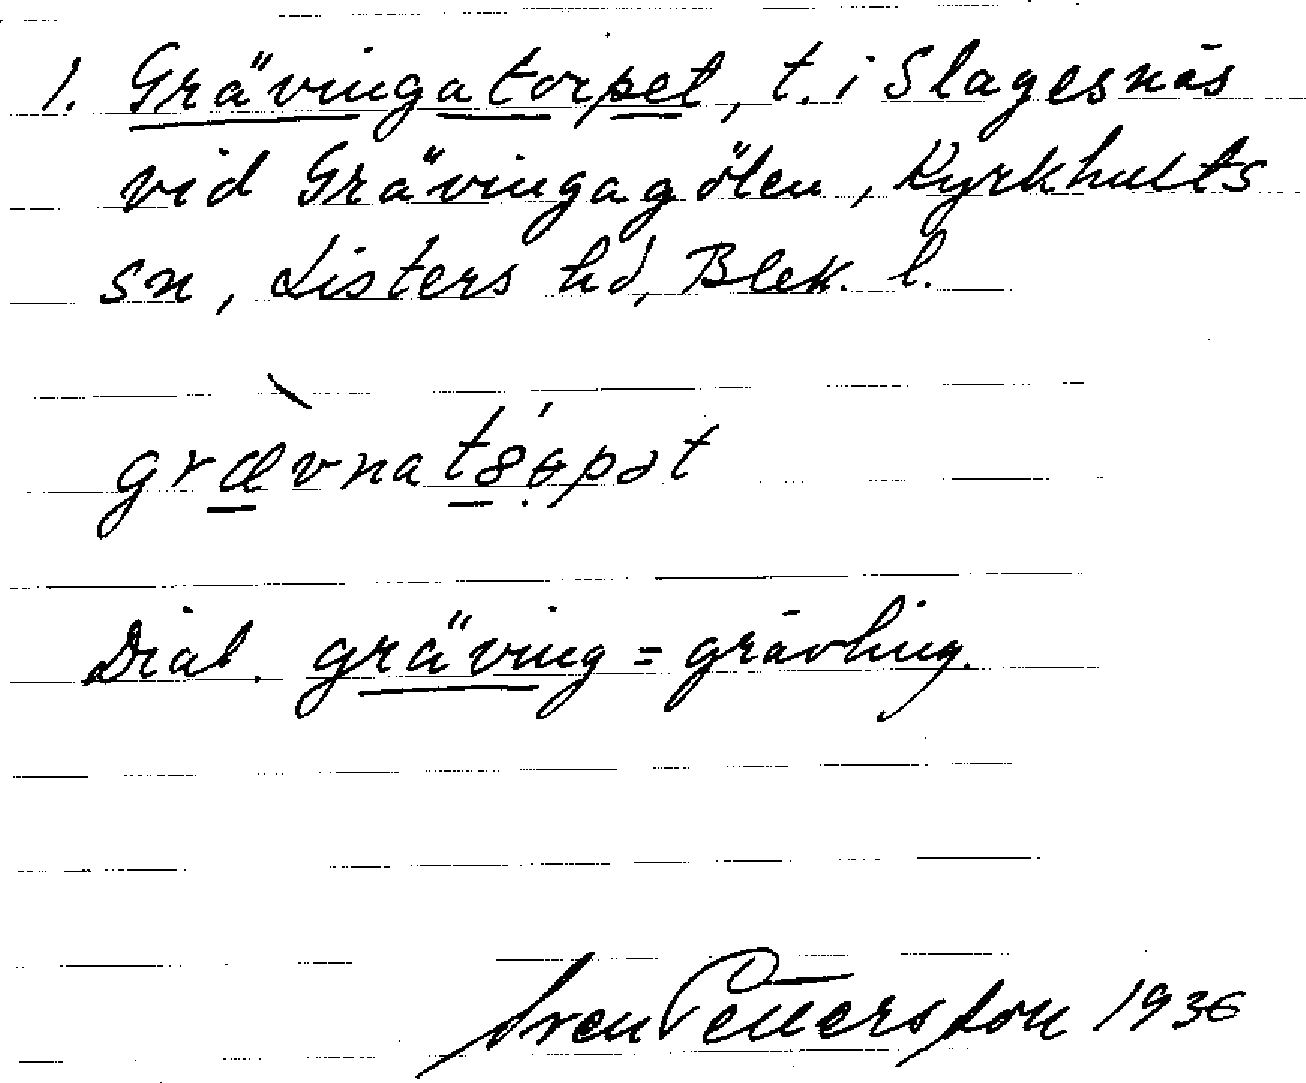 1. Grävingatorpet, t. i Slagesnäs
vid Grävingagölen, Kyrkhults
sn, Listers hd, Blek. l.
Dial. gräving = grävling.
Sven Pettersson 1936